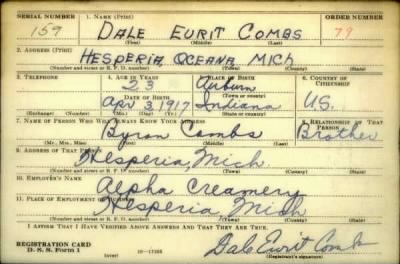 SERIAL NUMBER 1. NAME (Print) ORDER NUMBER
159 DALE EURIT COMBS 79
(First) (Middle) (Last)
2. ADDRESS (Print)
HESPERIA OCEANA MICH
(Number and street or R. F. D. number) (Town) (County) (State)
3. TELEPHONE 4. AGE IN YEARS 5. PLACE OF BIRTH 6. COUNTRY OF CITIZENSHIP
23 Auburn
DATE OF BIRTH (Town or county)
Apr 3, 1917 Indiana U.S.
(Exchange) (Number) (Mo.) (Day) (Yr.) (State or country)
7. NAME OF PERSON WHO WILL ALWAYS KNOW YOUR ADDRESS 8. RELATIONSHIP OF THAT PERSON
Byron Combs Brother
(Mr., Mrs., Miss) (First) (Middle) (Last)
9. ADDRESS OF THAT PERSON
Hesperia, Mich.
(Number and street or R. F. D. number) (Town) (County) (State)
10. EMPLOYER'S NAME
Alpha Creamery
11. PLACE OF EMPLOYMENT OR BUSINESS
Hesperia Mich
(Number and street or R. F. D. number) (Town) (County) (State)
I AFFIRM THAT I HAVE VERIFIED ABOVE ANSWERS AND THAT THEY ARE TRUE.
REGISTRATION CARD
D. S. S. Form 1 (over) Dale Eurit Combs
(Registrant's signature)